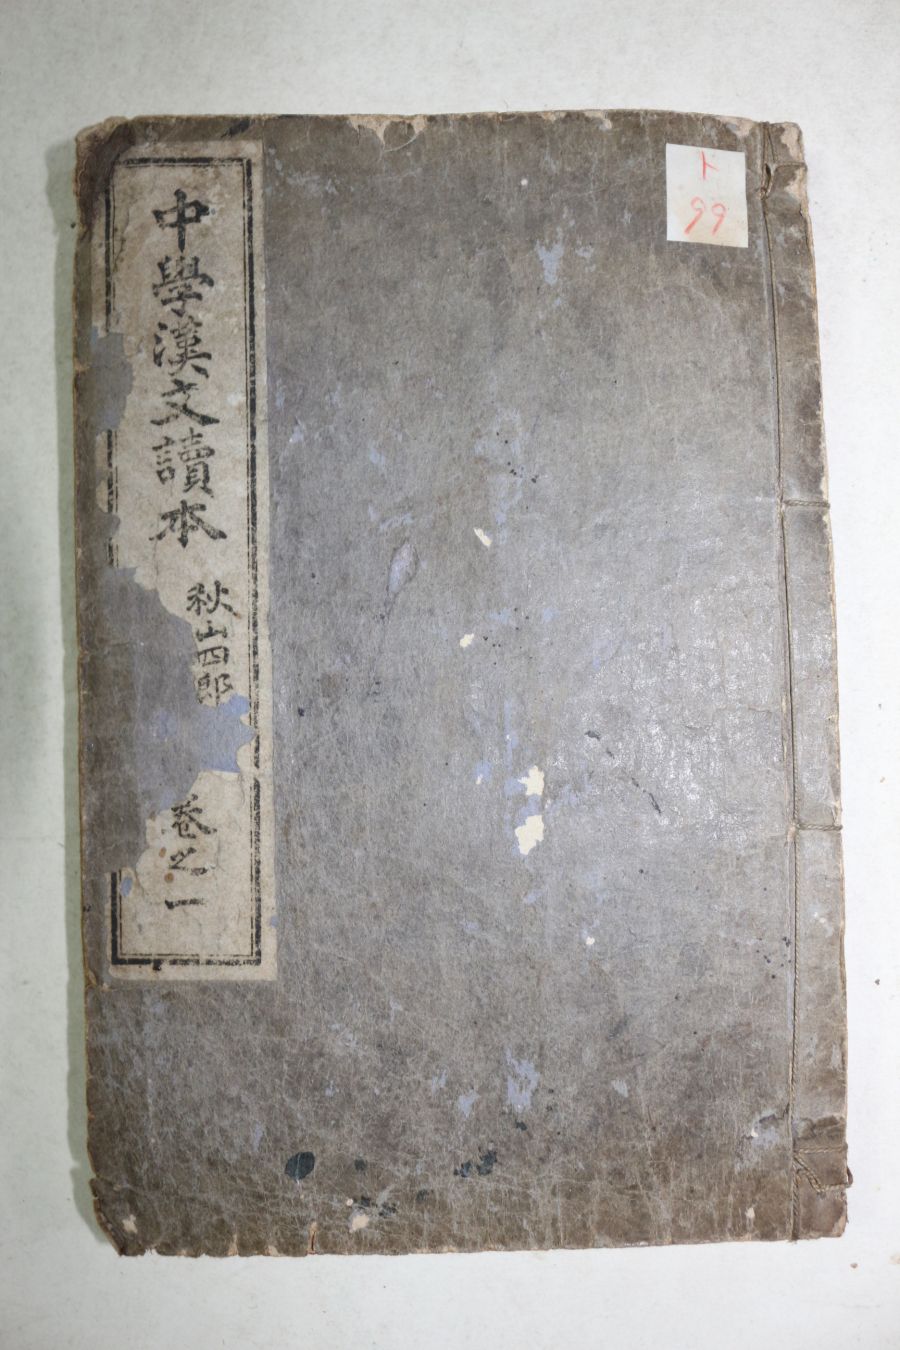 ト
99
中學漢文讀本 秋山四郎 卷之一